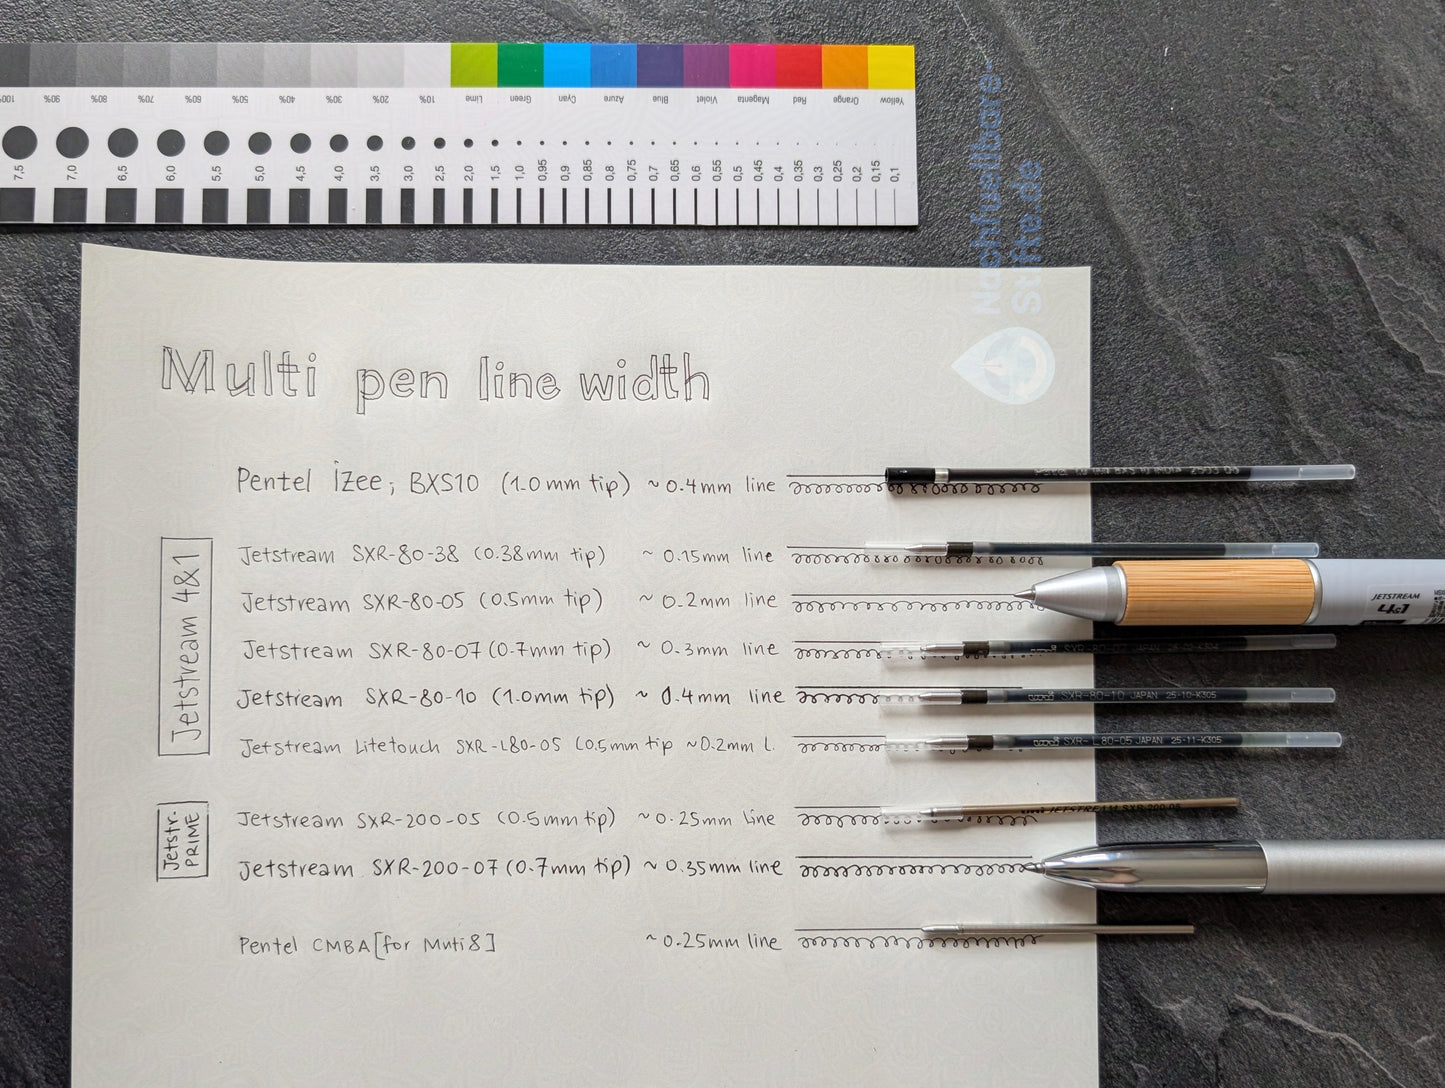 100%
90%
80%
70%
60%
50%
40%
30%
20%
10%
Lime
Green
Cyan
Azure
Blue
Violet
Magenta
Red
Orange
Yellow
7,5
7,0
6,5
6,0
5,5
5,0
4,5
4,0
3,5
3,0
2,5
2,0
1,5
1,0
0,95
0,9
0,85
0,8
0,75
0,7
0,65
0,6
0,55
0,5
0,45
0,4
0,35
0,3
0,25
0,2
0,15
0,1
Nachfuellbare-
Stifte.de
Multi pen line width
Pentel iZee; BXS10 (1.0mm tip) ~0.4mm line
Jetstream 4&1
Jetstream SXR-80-38 (0.38mm tip) ~0.15mm line
Jetstream SXR-80-05 (0.5mm tip) ~0.2mm line
JETSTREAM
4&1
Jetstream SXR-80-07 (0.7mm tip) ~0.3mm line
Jetstream SXR-80-10 (1.0mm tip) ~0.4mm line
SXR-80-10 JAPAN 25-10-K305
Jetstream Litetouch SXR-L80-05 (0.5mm tip ~0.2mm L.
SXR-L80-05 JAPAN 25-11-K305
Jetstr.
PRIME
Jetstream SXR-200-05 (0.5mm tip) ~0.25mm line
JETSTREAM SXR-200-05
Jetstream SXR-200-07 (0.7mm tip) ~0.35mm line
Pentel CMBA [for Muti8] ~0.25mm line